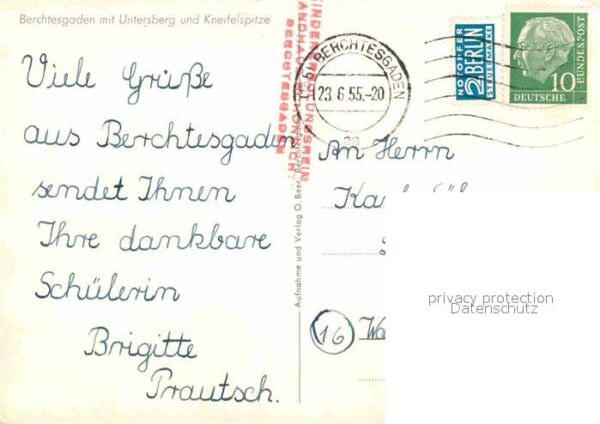 Berchtesgaden mit Untersberg und Kneifelspitze
Viele Grüße
aus Berchtesgaden
sendet Ihnen
Ihre dankbare
Schülerin
Brigitte
Prautsch.
BERCHTESGADEN
BERCHTESGADEN
23.6.55.-20
Aufnahme und Verlag O. Beer, Berchtesgaden
NOTOPFER
2 BERLIN
STEUERMARKE
10
DEUTSCHE
BUNDESPOST
An Herrn
16
privacy protection
Datenschutz